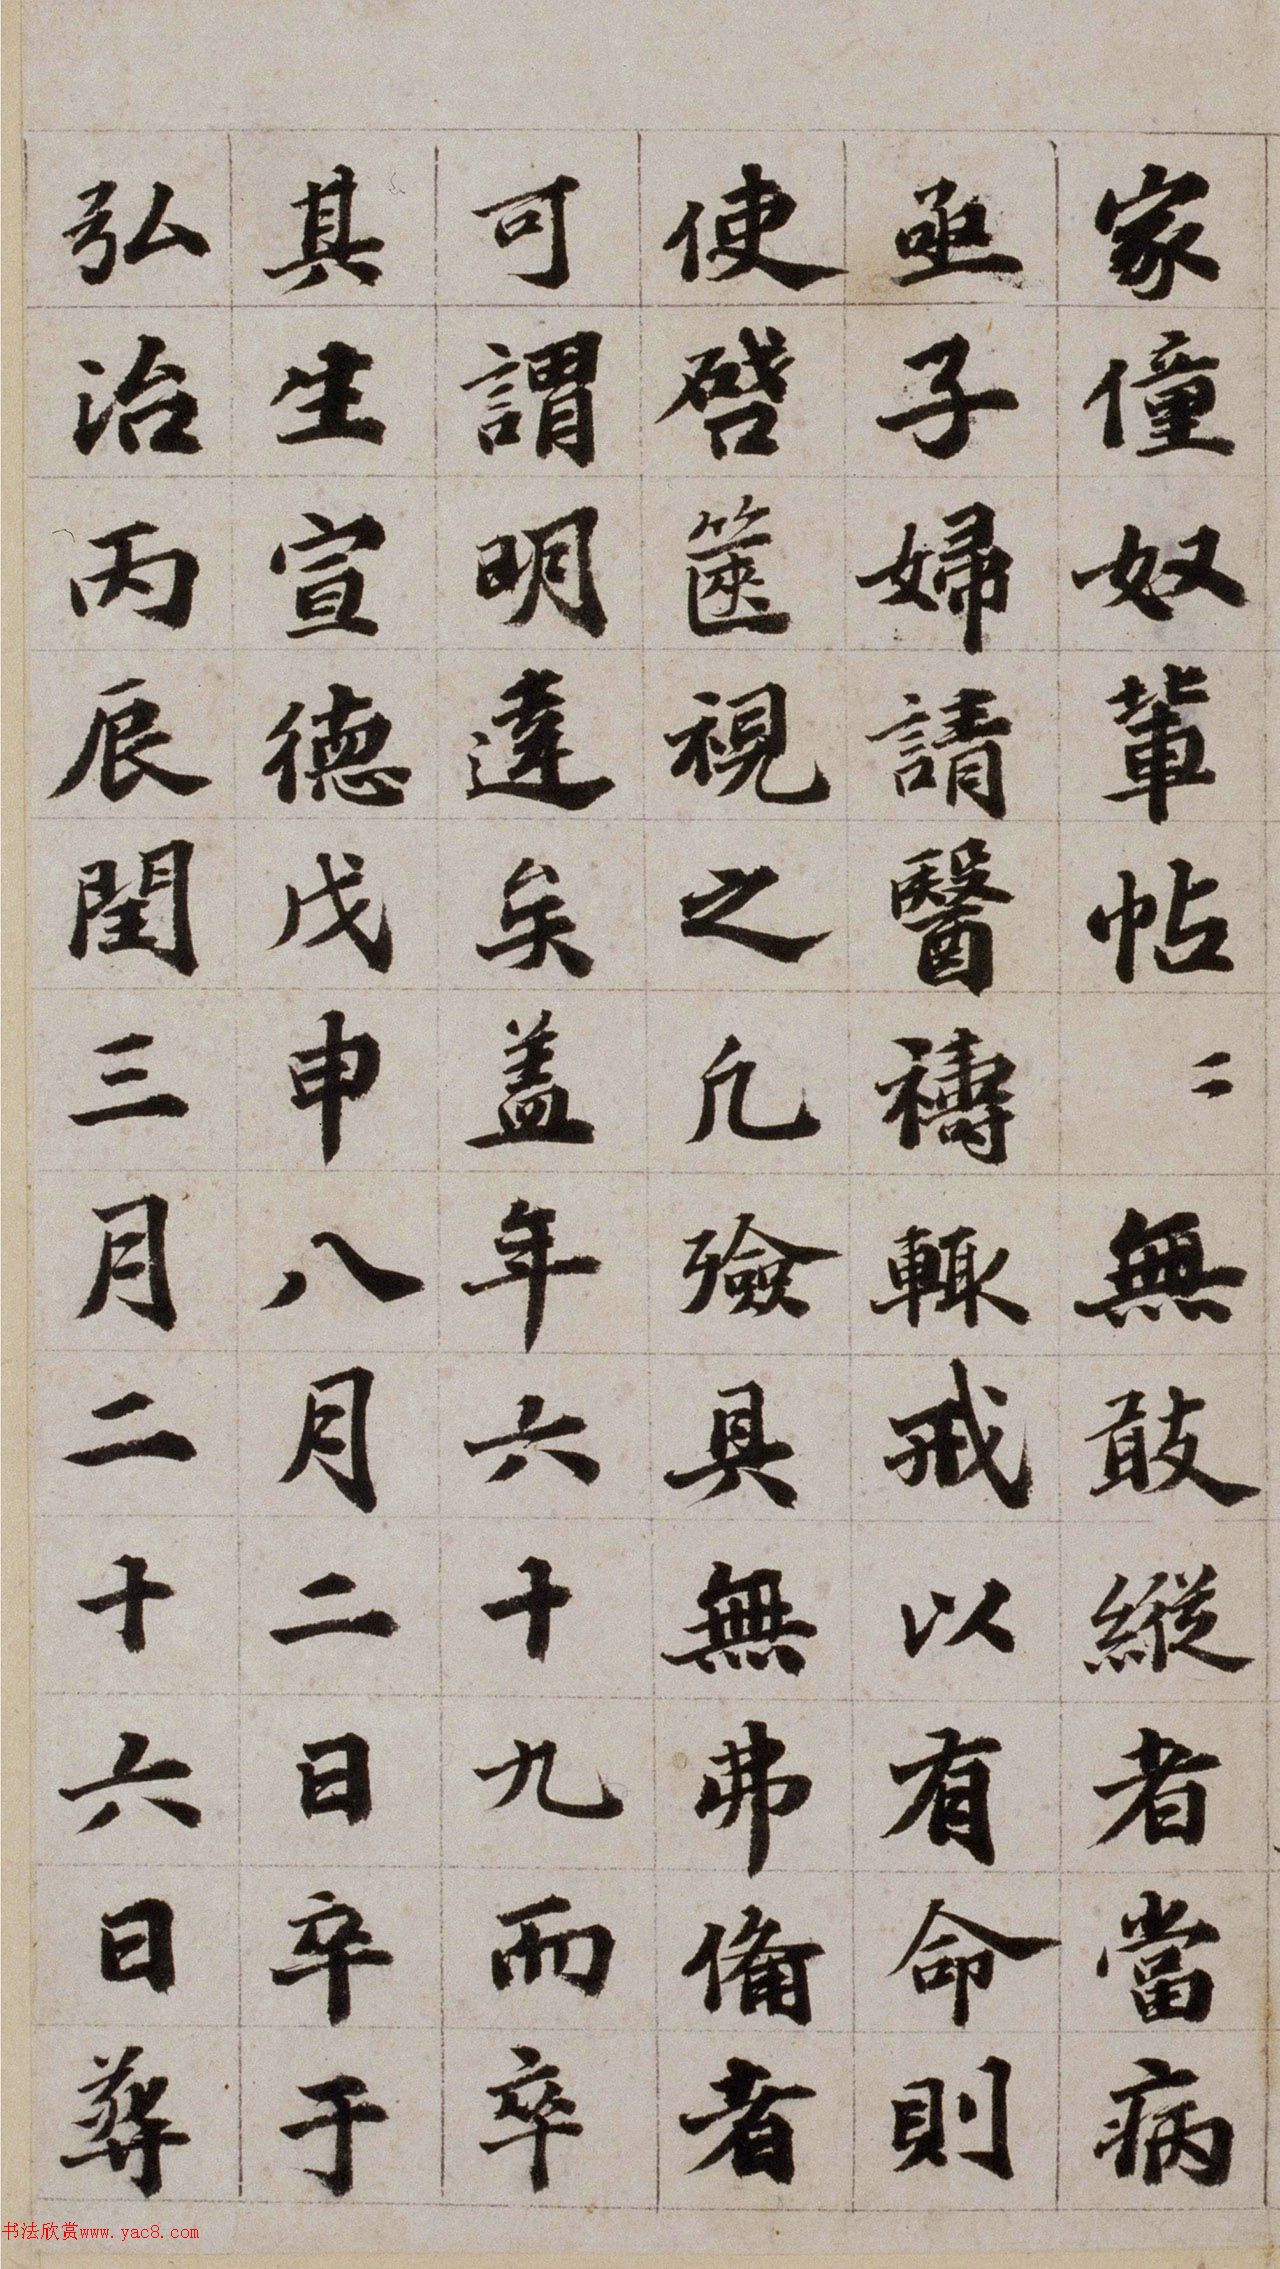 家僮奴輩帖〻無敢縱者當病
亟子婦請醫禱輒戒以有命則
使啓篋視之凡殮具無弗備者
可謂明達矣盖年六十九而卒
其生宣德戊申八月二日卒于
弘治丙辰閏三月二十六日葬
书法欣赏www.yac8.com